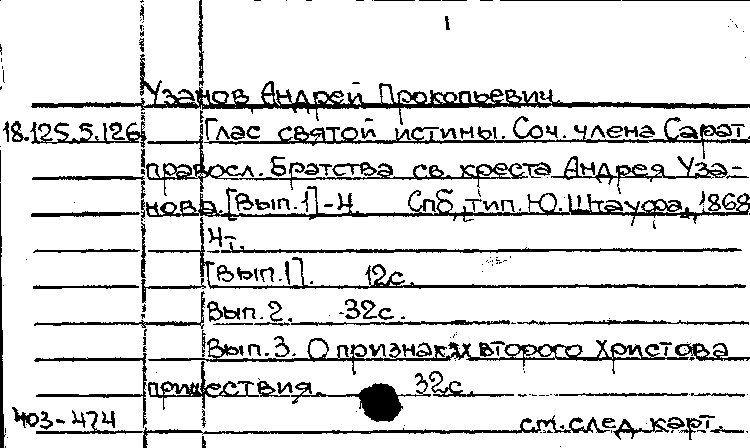 1
Узанов, Андрей Прокопьевич.
18.125.5.126 Глас святой истины. Соч. члена Сарат.
правосл. Братства св. креста Андрея Уза-
нова. [Вып. 1]-4. Спб, тип. Ю. Штауфа, 1868
4т.
[Вып. 1]. 12с.
Вып. 2. 32с.
Вып. 3. О признаках второго Христова
пришествия. 32с.
403-474 см. след. карт.